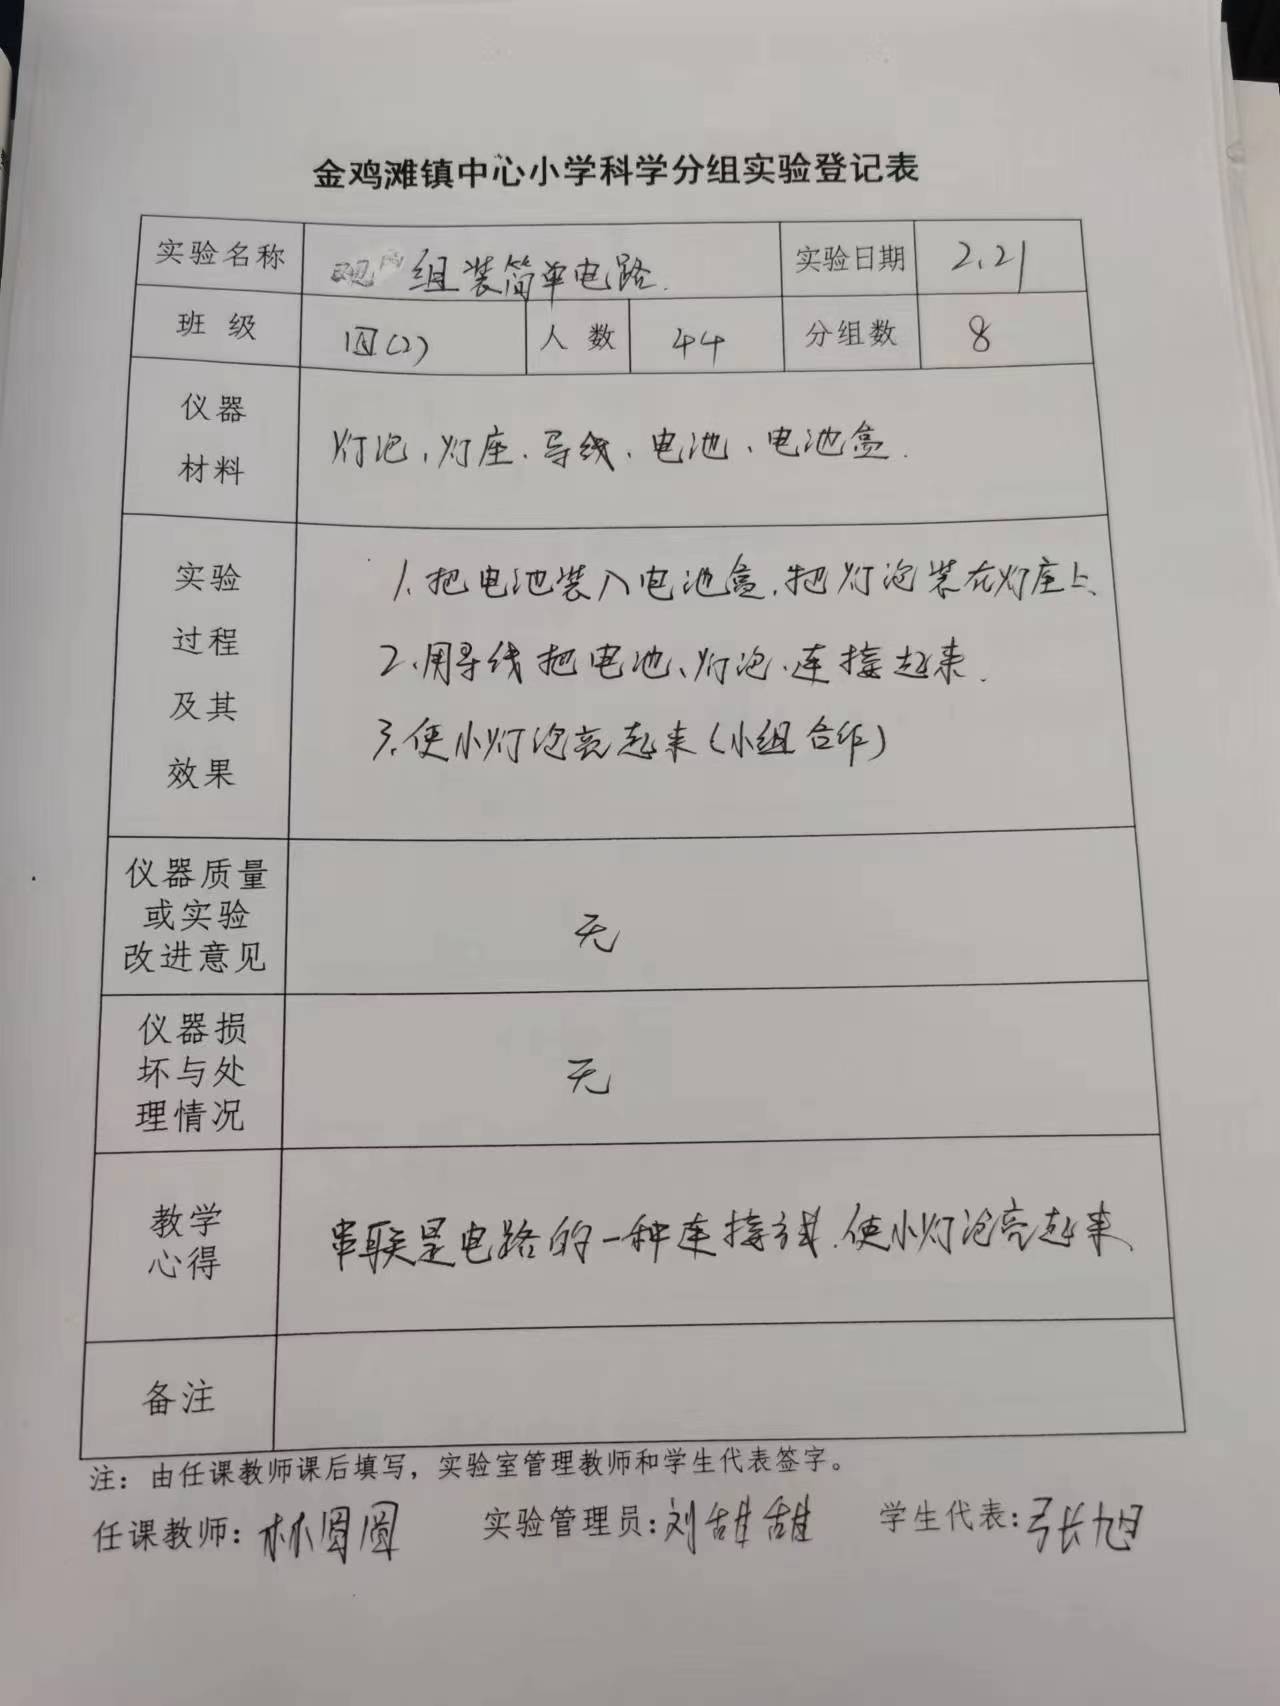 金鸡滩镇中心小学科学分组实验登记表
实验名称 组装简单电路. 实验日期 2.21
班 级 四(2) 人 数 44 分组数 8
仪器
材料
灯泡、灯座、导线、电池、电池盒.
实验
过程
及其
效果
1.把电池装入电池盒.把灯泡装在灯座上、
2、用导线把电池、灯泡、连接起来.
3、使小灯泡亮起来(小组合作)
仪器质量
或实验
改进意见
无
仪器损
坏与处
理情况
无
教学
心得
串联是电路的一种连接方式.使小灯泡亮起来、
备注
注：由任课教师课后填写，实验室管理教师和学生代表签字。
任课教师：林圆圆 实验管理员：刘甜甜 学生代表：张旭